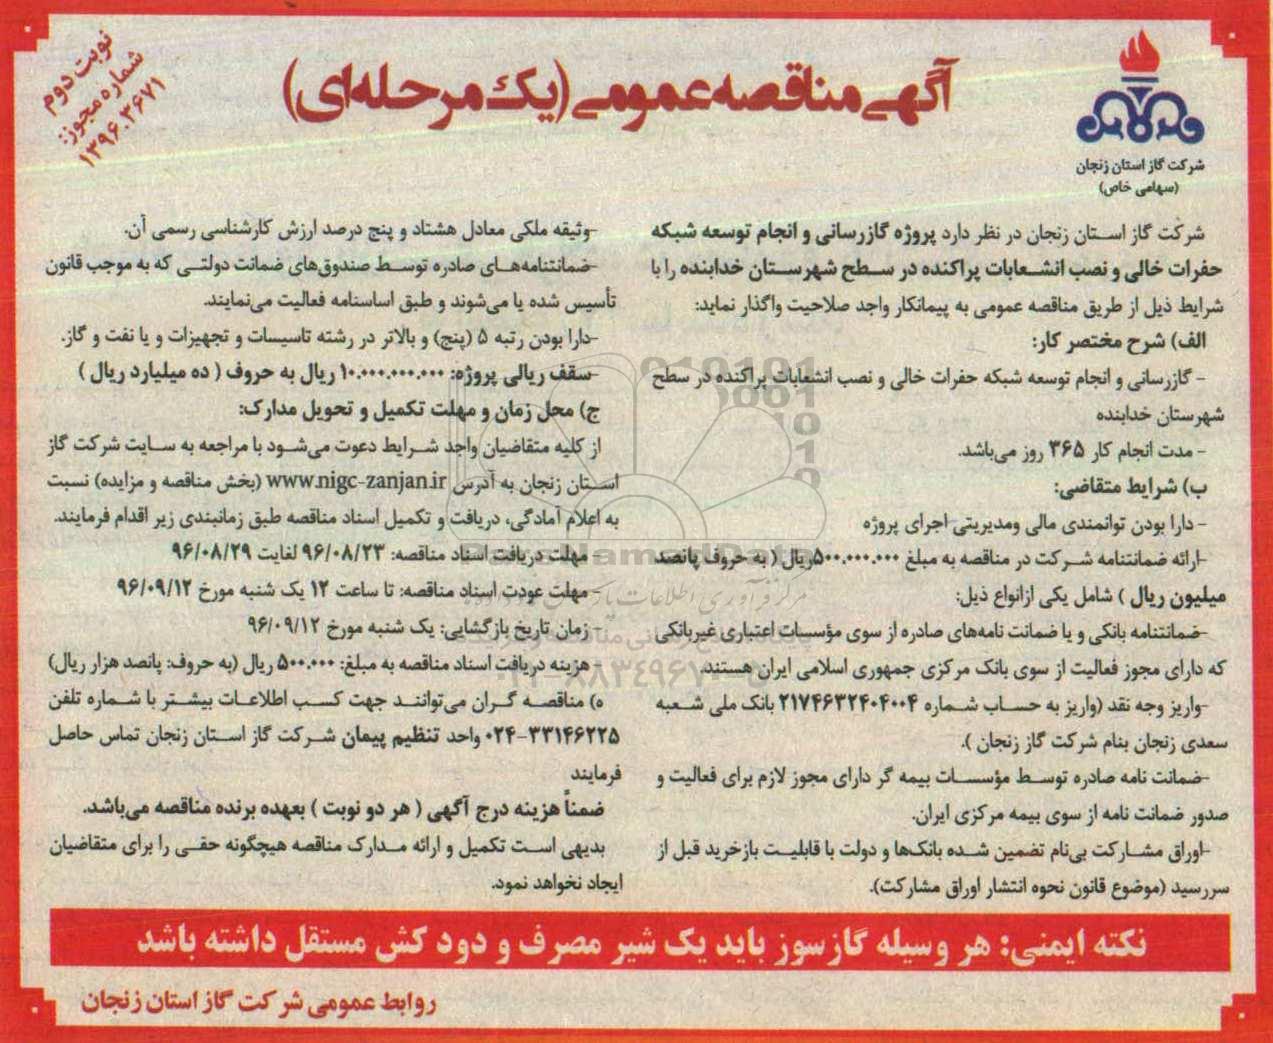 نوبت دوم
شماره مجوز:
۱۳۹۶.۳۶۷۱
آگهی مناقصه عمومی (یک مرحله‌ای)
شرکت گاز استان زنجان
(سهامی خاص)
شرکت گاز استان زنجان در نظر دارد پروژه گازرسانی و انجام توسعه شبکه
حفرات خالی و نصب انشعابات پراکنده در سطح شهرستان خدابنده را با
شرایط ذیل از طریق مناقصه عمومی به پیمانکار واجد صلاحیت واگذار نماید:
الف) شرح مختصر کار:
- گازرسانی و انجام توسعه شبکه حفرات خالی و نصب انشعابات پراکنده در سطح
شهرستان خدابنده
- مدت انجام کار ۳۶۵ روز می‌باشد.
ب) شرایط متقاضی:
- دارا بودن توانمندی مالی ومدیریتی اجرای پروژه
-ارائه ضمانتنامه شرکت در مناقصه به مبلغ ۵۰۰.۰۰۰.۰۰۰ریال ( به حروف پانصد
میلیون ریال ) شامل یکی ازانواع ذیل:
-ضمانتنامه بانکی و یا ضمانت نامه‌های صادره از سوی مؤسسات اعتباری غیربانکی
که دارای مجوز فعالیت از سوی بانک مرکزی جمهوری اسلامی ایران هستند.
-واریز وجه نقد (واریز به حساب شماره ۲۱۷۴۶۳۲۴۰۴۰۰۴ بانک ملی شعبه
سعدی زنجان بنام شرکت گاز زنجان ).
-ضمانت نامه صادره توسط مؤسسات بیمه گر دارای مجوز لازم برای فعالیت و
صدور ضمانت نامه از سوی بیمه مرکزی ایران.
-اوراق مشارکت بی‌نام تضمین شده بانک‌ها و دولت با قابلیت بازخرید قبل از
سررسید (موضوع قانون نحوه انتشار اوراق مشارکت).
-وثیقه ملکی معادل هشتاد و پنج درصد ارزش کارشناسی رسمی آن.
-ضمانتنامه‌های صادره توسط صندوق‌های ضمانت دولتی که به موجب قانون
تأسیس شده یا می‌شوند و طبق اساسنامه فعالیت می‌نمایند.
-دارا بودن رتبه ۵ (پنج) و بالاتر در رشته تاسیسات و تجهیزات و یا نفت و گاز.
-سقف ریالی پروژه: ۱۰.۰۰۰.۰۰۰.۰۰۰ ریال به حروف ( ده میلیارد ریال )
ج) محل زمان و مهلت تکمیل و تحویل مدارک:
از کلیه متقاضیان واجد شرایط دعوت می‌شود با مراجعه به سایت شرکت گاز
استان زنجان به آدرس www.nigc-zanjan.ir (بخش مناقصه و مزایده) نسبت
به اعلام آمادگی، دریافت و تکمیل اسناد مناقصه طبق زمانبندی زیر اقدام فرمایند.
- مهلت دریافت اسناد مناقصه: ۹۶/۰۸/۲۳ لغایت ۹۶/۰۸/۲۹
- مهلت عودت اسناد مناقصه: تا ساعت ۱۲ یک شنبه مورخ ۹۶/۰۹/۱۲
- زمان تاریخ بازگشایی: یک شنبه مورخ ۹۶/۰۹/۱۲
- هزینه دریافت اسناد مناقصه به مبلغ: ۵۰۰.۰۰۰ ریال (به حروف: پانصد هزار ریال)
ه) مناقصه گران می‌توانند جهت کسب اطلاعات بیشتر با شماره تلفن
۰۲۴-۳۳۱۴۶۲۲۵ واحد تنظیم پیمان شرکت گاز استان زنجان تماس حاصل
فرمایند
ضمناً هزینه درج آگهی ( هر دو نوبت ) بعهده برنده مناقصه می‌باشد.
بدیهی است تکمیل و ارائه مدارک مناقصه هیچگونه حقی را برای متقاضیان
ایجاد نخواهد نمود.
نکته ایمنی: هر وسیله گازسوز باید یک شیر مصرف و دود کش مستقل داشته باشد
روابط عمومی شرکت گاز استان زنجان